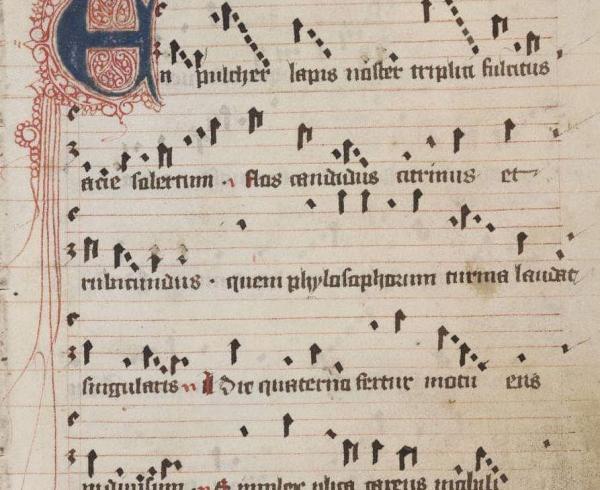 En pulcher lapis noster triplici fulcitus
acie solertum. flos candidus citrinus et
rubicundus. quem phylosophorum turma laudat
singularis Hic quaterno fertur motu ens
indivisum